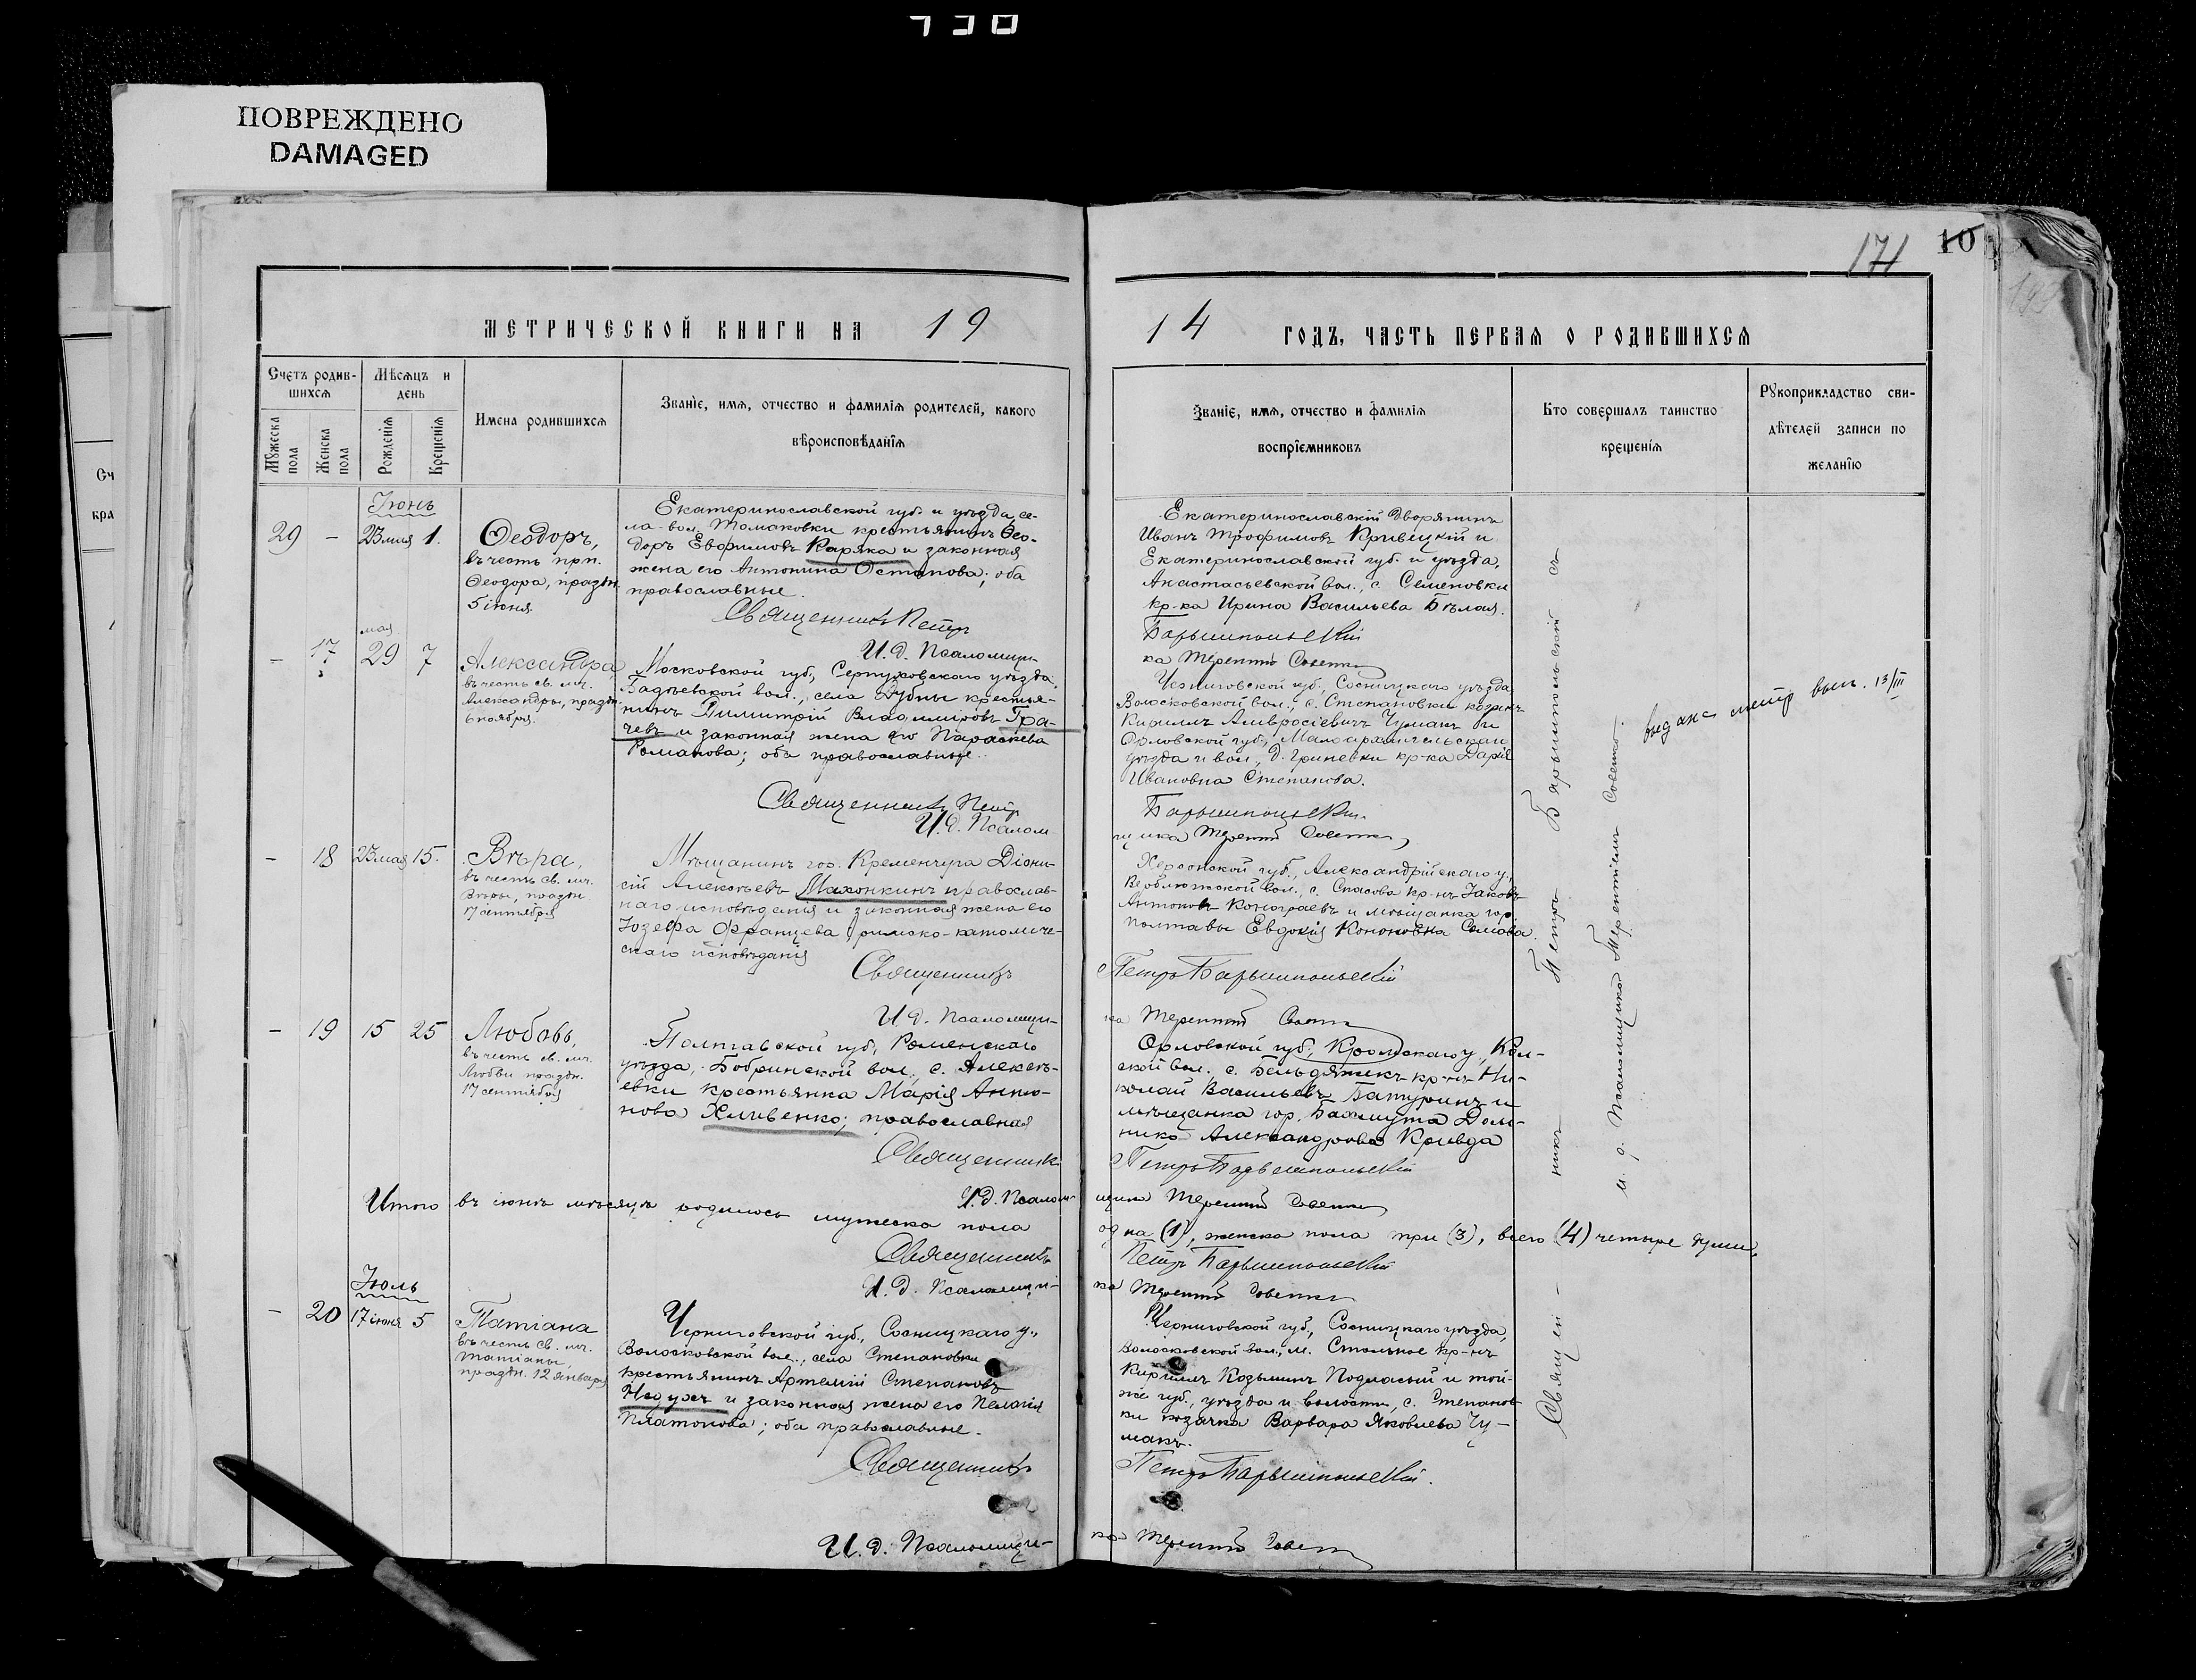 ПОВРЕЖДЕНО
DAMAGED
171
10
МЕТРИЧЕСКОЙ КНИГИ НА 19
14 ГОДЪ, ЧАСТЬ ПЕРВАЯ О РОДИВШИХСЯ
Счетъ родив-
шихся
Мужеска пола
Женска пола
Мѣсяцъ и
день
Рожденія
Крещенія
Имена родившихся
Званіе, имя, отчество и фамилія родителей, какого
вѣроисповѣданія
Званіе, имя, отчество и фамилія
воспріемниковъ
Кто совершалъ таинство
крещенія
Рукоприкладство сви-
дѣтелей записи по
желанію
Іюнь
29 - 23 мая 1.
Ѳеодоръ,
въ честь прп.
Ѳеодора, праздн.
5 іюня
Екатеринославской губ. и уѣзда, се-
ла-вол. Томаковки крестьянинъ Ѳео-
доръ Евфимовъ Каряка и законная
жена его Антонина Остапова; оба
православные.
Екатеринославскій дворянинъ
Иванъ Трофимовъ Кривецкій и
Екатеринославской губ. и уѣзда,
Анастасьевской вол., с. Семеновки
кр-ка Ирина Васильева Бѣлая.
Священникъ Петръ Барышпольскій
И. д. Псаломщи-
ка Терентій Советъ
- 17 мая 29 7
Александра,
въ честь св. мч.
Александры, праздн.
6 ноября.
Московской губ., Серпуховского уѣзда,
Бадѣевской вол., села Дубны крестья-
нинъ Димитрій Владиміровъ Гра-
чевъ и законная жена его Параскева
Романова; оба православные.
Черниговской губ., Сосницкаго уѣзда,
Волосковской вол., с. Степановки козакъ
Кириллъ Амвросіевичъ Чумакъ и
Орловской губ., Малоархангельскаго
уѣзда и вол., д. Гриневки кр-ка Дарія
Ивановна Степанова.
Священникъ Петръ
Барышпольскій
И. д. Псалом-
щика Терентій
выдана метр вып. 13/III
- 18 23 мая 15.
Вѣра,
въ честь св. мч.
Вѣры, праздн.
17 сентября
Мѣщанинъ гор. Кременчуга Діони-
сій Алексѣевъ Махонкинъ православ-
наго исповѣданія и законная жена его
Іозефа Францева римско-католиче-
скаго исповѣданія
Херсонской губ., Александрійскаго у.,
Верблюжской вол., с. Спасова кр-нъ Іаковъ
Антоновъ и мѣщанка гор.
Полтавы Евдокія
Священникъ
Петръ Барышпольскій
И. д. Псаломщи-
ка Терентій
- 19 15 25
Любовь,
въ честь св. мч.
Любви праздн.
17 сентября
Полтавской губ., Роменскаго
уѣзда, Бобринской вол., с. Алексѣ-
евки крестьянка Марія Анто-
нова Хливенко; православная
Орловской губ., Кромскаго у.,
ской вол. с. Бельдяжекъ кр-нъ Ни-
колай Васильевъ Батуринъ и
мѣщанка гор. Бахмута Дом-
ника Александрова Кривда
Священникъ
Петръ Барышпольскій
И. д. Псалом-
щика Терентій
Итого въ іюнѣ мѣсяцѣ родилось мужеска пола
одна (1), женска пола три (3), всего (4) четыре души.
Священникъ
Петръ Барышпольскій
И. д. Псаломщи-
ка Терентій
Іюль
- 20 17 іюня 5
Татіана
въ честь св. мч.
Татіаны,
праздн. 12 января
Черниговской губ., Сосницкаго у.,
Волосковской вол., села Степановки
крестьянинъ Артемій Степановъ
Недужъ и законная жена его Пелагія
Платонова; оба православные.
Черниговской губ., Сосницкаго уѣзда,
Волосковской вол., м. Стольное кр-нъ
Кириллъ Козьминъ и той-
же губ., уѣзда и волости, с. Степанов-
ки козачка Варвара Яковлева Чу-
макъ.
Священникъ
Петръ Барышпольскій.
И. д. Псаломщи-
ка Терентій
Священникъ Петръ Барышпольскій съ
и. д. Псаломщика Терентіемъ